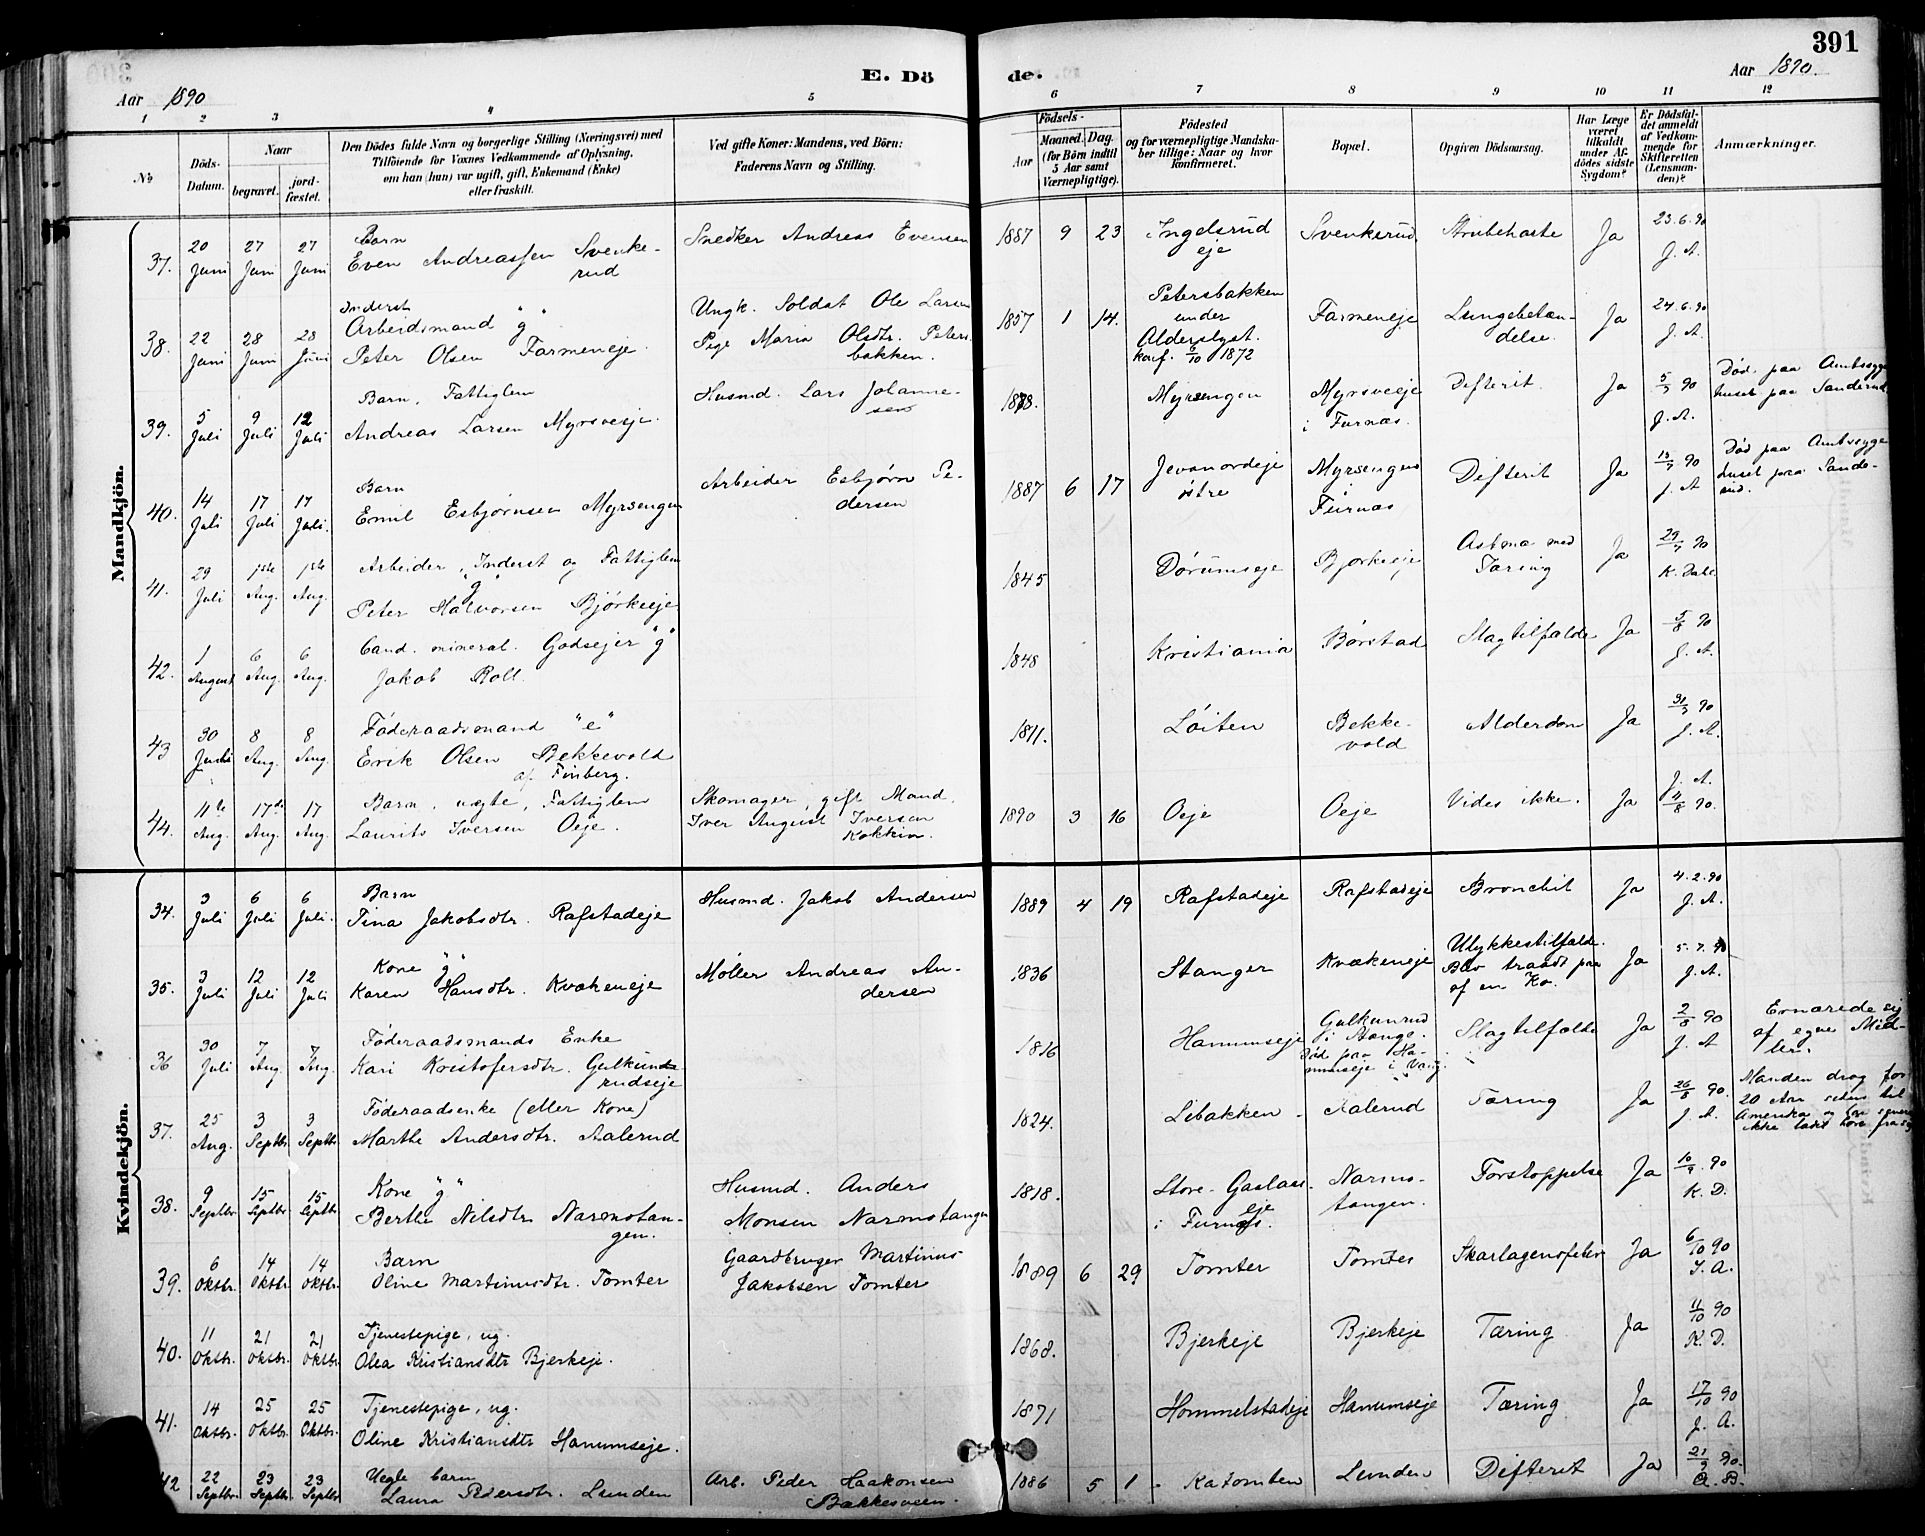 391
E. Dö de.
Aar 1890
Aar 1890.
1 2 3 4 5 6 7 8 9 10 11 12
No
Döds-Datum.
Naar
begravet.
jord-fæstet.
Den Dödes fulde Navn og borgerlige Stilling (Næringsvei) med
Tilföiende for Voxnes Vedkommende af Oplysning,
om han (hun) var ugift, gift, Enkemand (Enke)
eller fraskilt.
Ved gifte Koner: Mandens, ved Börn:
Faderens Navn og Stilling.
Födsels-
Aar Maaned. Dag.
(for Börn indtil
5 Aar samt
Værnepligtige).
Födested
og for værnepligtige Mandska-
ber tillige: Naar og hvor
konfirmeret.
Bopæl.
Opgiven Dödsaarsag.
Har Læge
været
tilkaldt
under Af-
dödes sidste
Sygdom?
Er Dödsfal-
det anmeldt
af Vedkom-
mende for
Skifteretten
(Lensman-
den)?
Anmærkninger.
Mandkjön.
37. 20 Juni 27 Juni 27 Juni Barn
Even Andreassen Svenke-
rud Snedker Andreas Evensen 1887 9 23 Ingelsrud
eje Svenkerud Strubehoste Ja 23.6.90
J. A.
38. 22 Juni 28 Juni 28 Juni Inderst
Arbeidsmand "g"
Peter Olsen Farmeneje. Ungk. Soldat Ole Larsen
Pige Maria Olsdtr. Peters
bakken. 1857 1 14. Petersbakken
under
Alderslyst.
konf. 6/10 1872 Farmeneje Lungebetæn-
delse. Ja 24.6.90
J. A.
39. 5 Juli 9 Juli 12 Juli Barn, Fattiglem
Andreas Larsen Myrsveje. Husmd. Lars Johanne-
sen 1878. Myrsengen Myrsveeje
i Furnæs. Defterit. Ja 5/7 90
J. A. Död paa Amtssyge
huset paa Sanderud
40. 14 Juli 17 Juli 17 Juli. Barn
Emil Esbjørnsen Myrsengen Arbeider Esbjørn Pe-
dersen 1887 6 17 Jevanordeje
östre Myrsengen
Furnæs Difterit Ja 15/7 90
J. A Död paa Amtssyge
huset paa Sande-
rud.
41. 29 Juli 1ste Aug. 1ste Aug. Arbeider, Inderst og Fattiglem
"g"
Peter Halvorsen Bjørkeeje 1845 Dørumseje Bjorkeeje Astma med
Tæring Ja 29/7 90
K. Dahl
42. 1 August 6 Aug. 6 Aug. Cand. mineral. Godsejer "g"
Jakob Roll. 1848 Kristiania Börstad Slagtilfælde Ja 5/8 90
J. A.
43 30 Juli 8 Aug. 8 Aug. Föderaadsmand "e"
Erik Olsen Bekkevold
af Finberg. 1811. Löiten Bekke-
vold Alderdom Ja 31/7 90
J. A.
44. 11te Aug. 17de Aug. 17 Aug. Barn, uægte, Fattiglem
Laurits Iversen Oeje. Skomager, gift Mand.
Iver August Iversen
Kokkin. 1890 3 16 Oeje Oeje Vides ikke. Ja J. A.
11/8 90.
Kvindekjön.
34. 3 Juli 6 Juli 6 Juli. Barn
Tina Jakobsdtr. Rafstadeje Husmd. Jakob Andersen 1889 4 19 Rafstadeje Rafstadeje Bronchit Ja 4.2.90
J. A.
35. 3 Juli 12 Juli 12 Juli Kone "g"
Karen Hansdtr. Kvækeneje Møller Andreas An-
dersen 1836 Stanger Kvækeneje Ulykkestilfælde.
Blev traadt paa
af en Ko. Ja 5.7.90
J. A.
36 30 Juli 7 Aug. 7 Aug. Föderaadsmands Enke
Kari Kristofersdtr. Gulkund-
rudseje 1816 Hanumseje Gulkunrud
i Stange.
Död paa Ha-
numseje i Vang. Slagtilfælde Ja 2/8 90
J. A Ernærede sig
af egne Mid-
ler.
37. 25 Aug. 3 Septbr. 3 Septbr. Föderaadsenke (eller Kone)
Marthe Andersdtr. Aalerud 1824. Libakken Aalerud Tæring Ja 26/8 90.
J. A. Manden drog for
20 Aar siden til
Amerika
ikke ladet høre fra sig
38. 9 Septbr. 15 Septbr. 15 Septbr. Kone "g"
Berthe Nilsdtr. Narmstan-
gen. Husmd. Anders
Monsen Narmstangen 1818. Store-Gaslaas
eje
i Furnæs. Narms-
tangen. Forstoppelse Ja 10/9 90
K. D.
39. 6 Oktbr. 14 Oktbr. 14 Oktbr. Barn
Oline Martinusdtr. Tomter Gaardbruger Martinus
Jakobsen Tomter 1889 6 29 Tomter Tomter Skarlagensfeber Ja 6/10 90
J. A.
40. 11 Oktbr. 21 Oktbr. 21 Oktbr. Tjenestepige, ug.
Olea Kristiansdtr Bjerkeje. 1868. Bjerkeje Bjerkeje Tæring Ja 11/10 90
K. D.
41. 14 Oktbr. 25 Oktbr. 25 Oktbr. Tjenestepige, ug.
Oline Kristiansdtr Hanumseje. 1871 Hommelstadeje Hanumseje Tæring Ja 17/10 90
J. A.
42 22 Septbr. 23 Septbr. 23 Septbr. Uegte barn
Laura Pedersdtr. Lunden Arb. Peder Haakonsen
Bakkesveen. 1886 5 1 Katomten Lunden Difterit Ja 21/9 90.